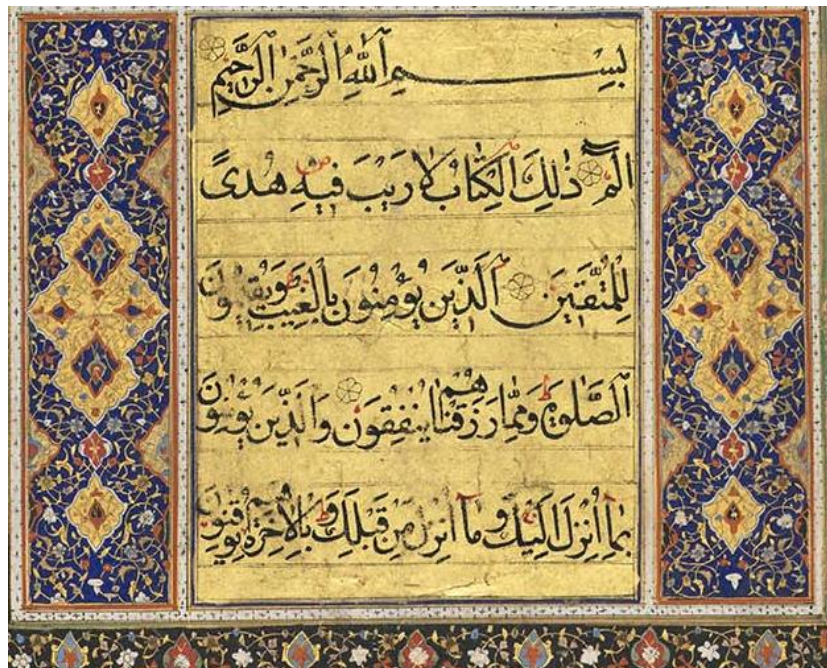 بِسْمِ ٱللَّهِ ٱلرَّحْمَٰنِ ٱلرَّحِيمِ
الٓمٓ ذَٰلِكَ الْكِتَابُ لَا رَيْبَ فِيهِ هُدًى
لِلْمُتَّقِينَ الَّذِينَ يُؤْمِنُونَ بِالْغَيْبِ وَيُقِيمُونَ
ٱلصَّلَوٰةَ وَمِمَّا رَزَقْنَاهُمْ يُنْفِقُونَ وَالَّذِينَ يُؤْمِنُونَ
بِمَآ أُنْزِلَ إِلَيْكَ وَمَآ أُنْزِلَ مِنْ قَبْلِكَ وَبِالْآخِرَةِ هُمْ يُوقِنُونَ